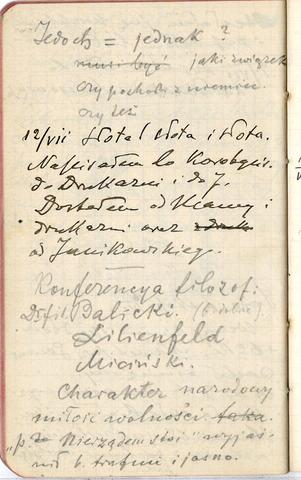 Jedoch = jednak?
musi być jaki związek
czy pochodzi z niemiec.
czy też
12/VII Słota! słota i słota.
Napisałem do
do Drukarni i do J.
Dostałem od i
drukarni oraz
od Janikowskiego.
Konferencya filozof:
Dr fil. Balicki.
Lilienfeld
Miciński.
Charakter narodowy
miłość wolności
"p Nierządem stoi" wyjaś-
nił b. trafnie i jasno.